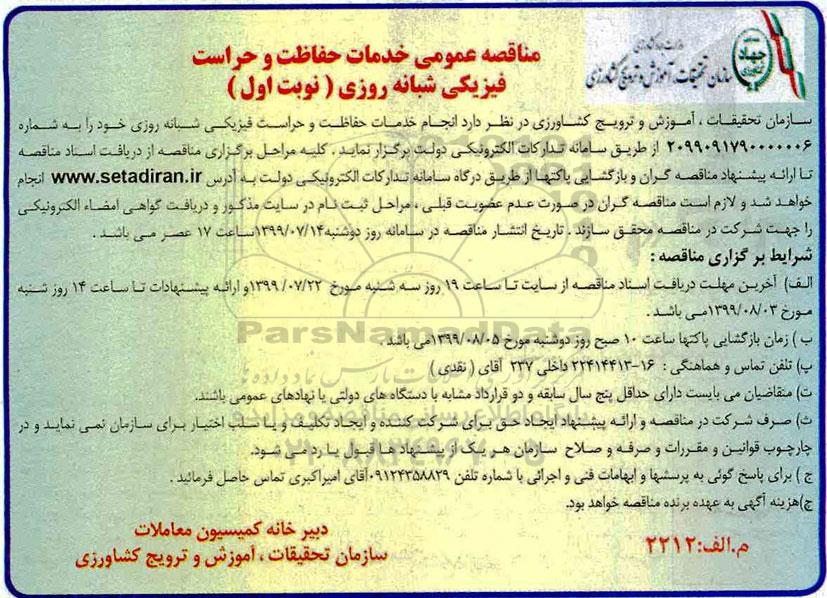 وزارت جهاد کشاورزی
سازمان تحقیقات، آموزش و ترویج کشاورزی
مناقصه عمومی خدمات حفاظت و حراست
فیزیکی شبانه روزی ( نوبت اول )
سازمان تحقیقات ، آموزش و ترویج کشاورزی در نظر دارد انجام خدمات حفاظت و حراست فیزیکی شبانه روزی خود را به شماره
۲۰۹۹۰۹۱۷۹۰۰۰۰۰۰۶ از طریق سامانه تدارکات الکترونیکی دولت برگزار نماید . کلیه مراحل برگزاری مناقصه از دریافت اسناد مناقصه
تا ارائه پیشنهاد مناقصه گران و بازگشایی پاکتها از طریق درگاه سامانه تدارکات الکترونیکی دولت به آدرس www.setadiran.ir انجام
خواهد شد و لازم است مناقصه گران در صورت عدم عضویت قبلی ، مراحل ثبت نام در سایت مذکور و دریافت گواهی امضاء الکترونیکی
را جهت شرکت در مناقصه محقق سازند . تاریخ انتشار مناقصه در سامانه روز دوشنبه ۱۳۹۹/۰۷/۱۴ساعت ۱۷ عصر می باشد .
شرایط برگزاری مناقصه :
الف) آخرین مهلت دریافت اسناد مناقصه از سایت تا ساعت ۱۹ روز سه شنبه مورخ ۱۳۹۹/۰۷/۲۲ و ارائه پیشنهادات تا ساعت ۱۴ روز شنبه
مورخ ۱۳۹۹/۰۸/۰۳می باشد .
ب ) زمان بازگشایی پاکتها ساعت ۱۰ صبح روز دوشنبه مورخ ۱۳۹۹/۰۸/۰۵می باشد .
پ) تلفن تماس و هماهنگی : ۱۶-۲۲۴۱۴۴۱۳ داخلی ۲۳۷ آقای ( نقدی )
ت) متقاضیان می بایست دارای حداقل پنج سال سابقه و دو قرارداد مشابه با دستگاه های دولتی یا نهادهای عمومی باشند.
ث) صرف شرکت در مناقصه و ارائه پیشنهاد ایجاد حق برای شرکت کننده و ایجاد تکلیف و یا سلب اختیار برای سازمان نمی نماید و در
چارچوب قوانین و مقررات و صرفه و صلاح سازمان هر یک از پیشنهاد ها قبول یا رد می شود.
ج ) برای پاسخ گوئی به پرسشها و ابهامات فنی و اجرائی با شماره تلفن ۰۹۱۲۴۳۵۸۸۲۹آقای امیراکبری تماس حاصل فرمائید .
چ)هزینه آگهی به عهده برنده مناقصه خواهد بود.
دبیر خانه کمیسیون معاملات
سازمان تحقیقات ، آموزش و ترویج کشاورزی
م.الف:۲۲۱۲
ParsNamadData
پایگاه اطلاع رسانی مناقصه و مزایده